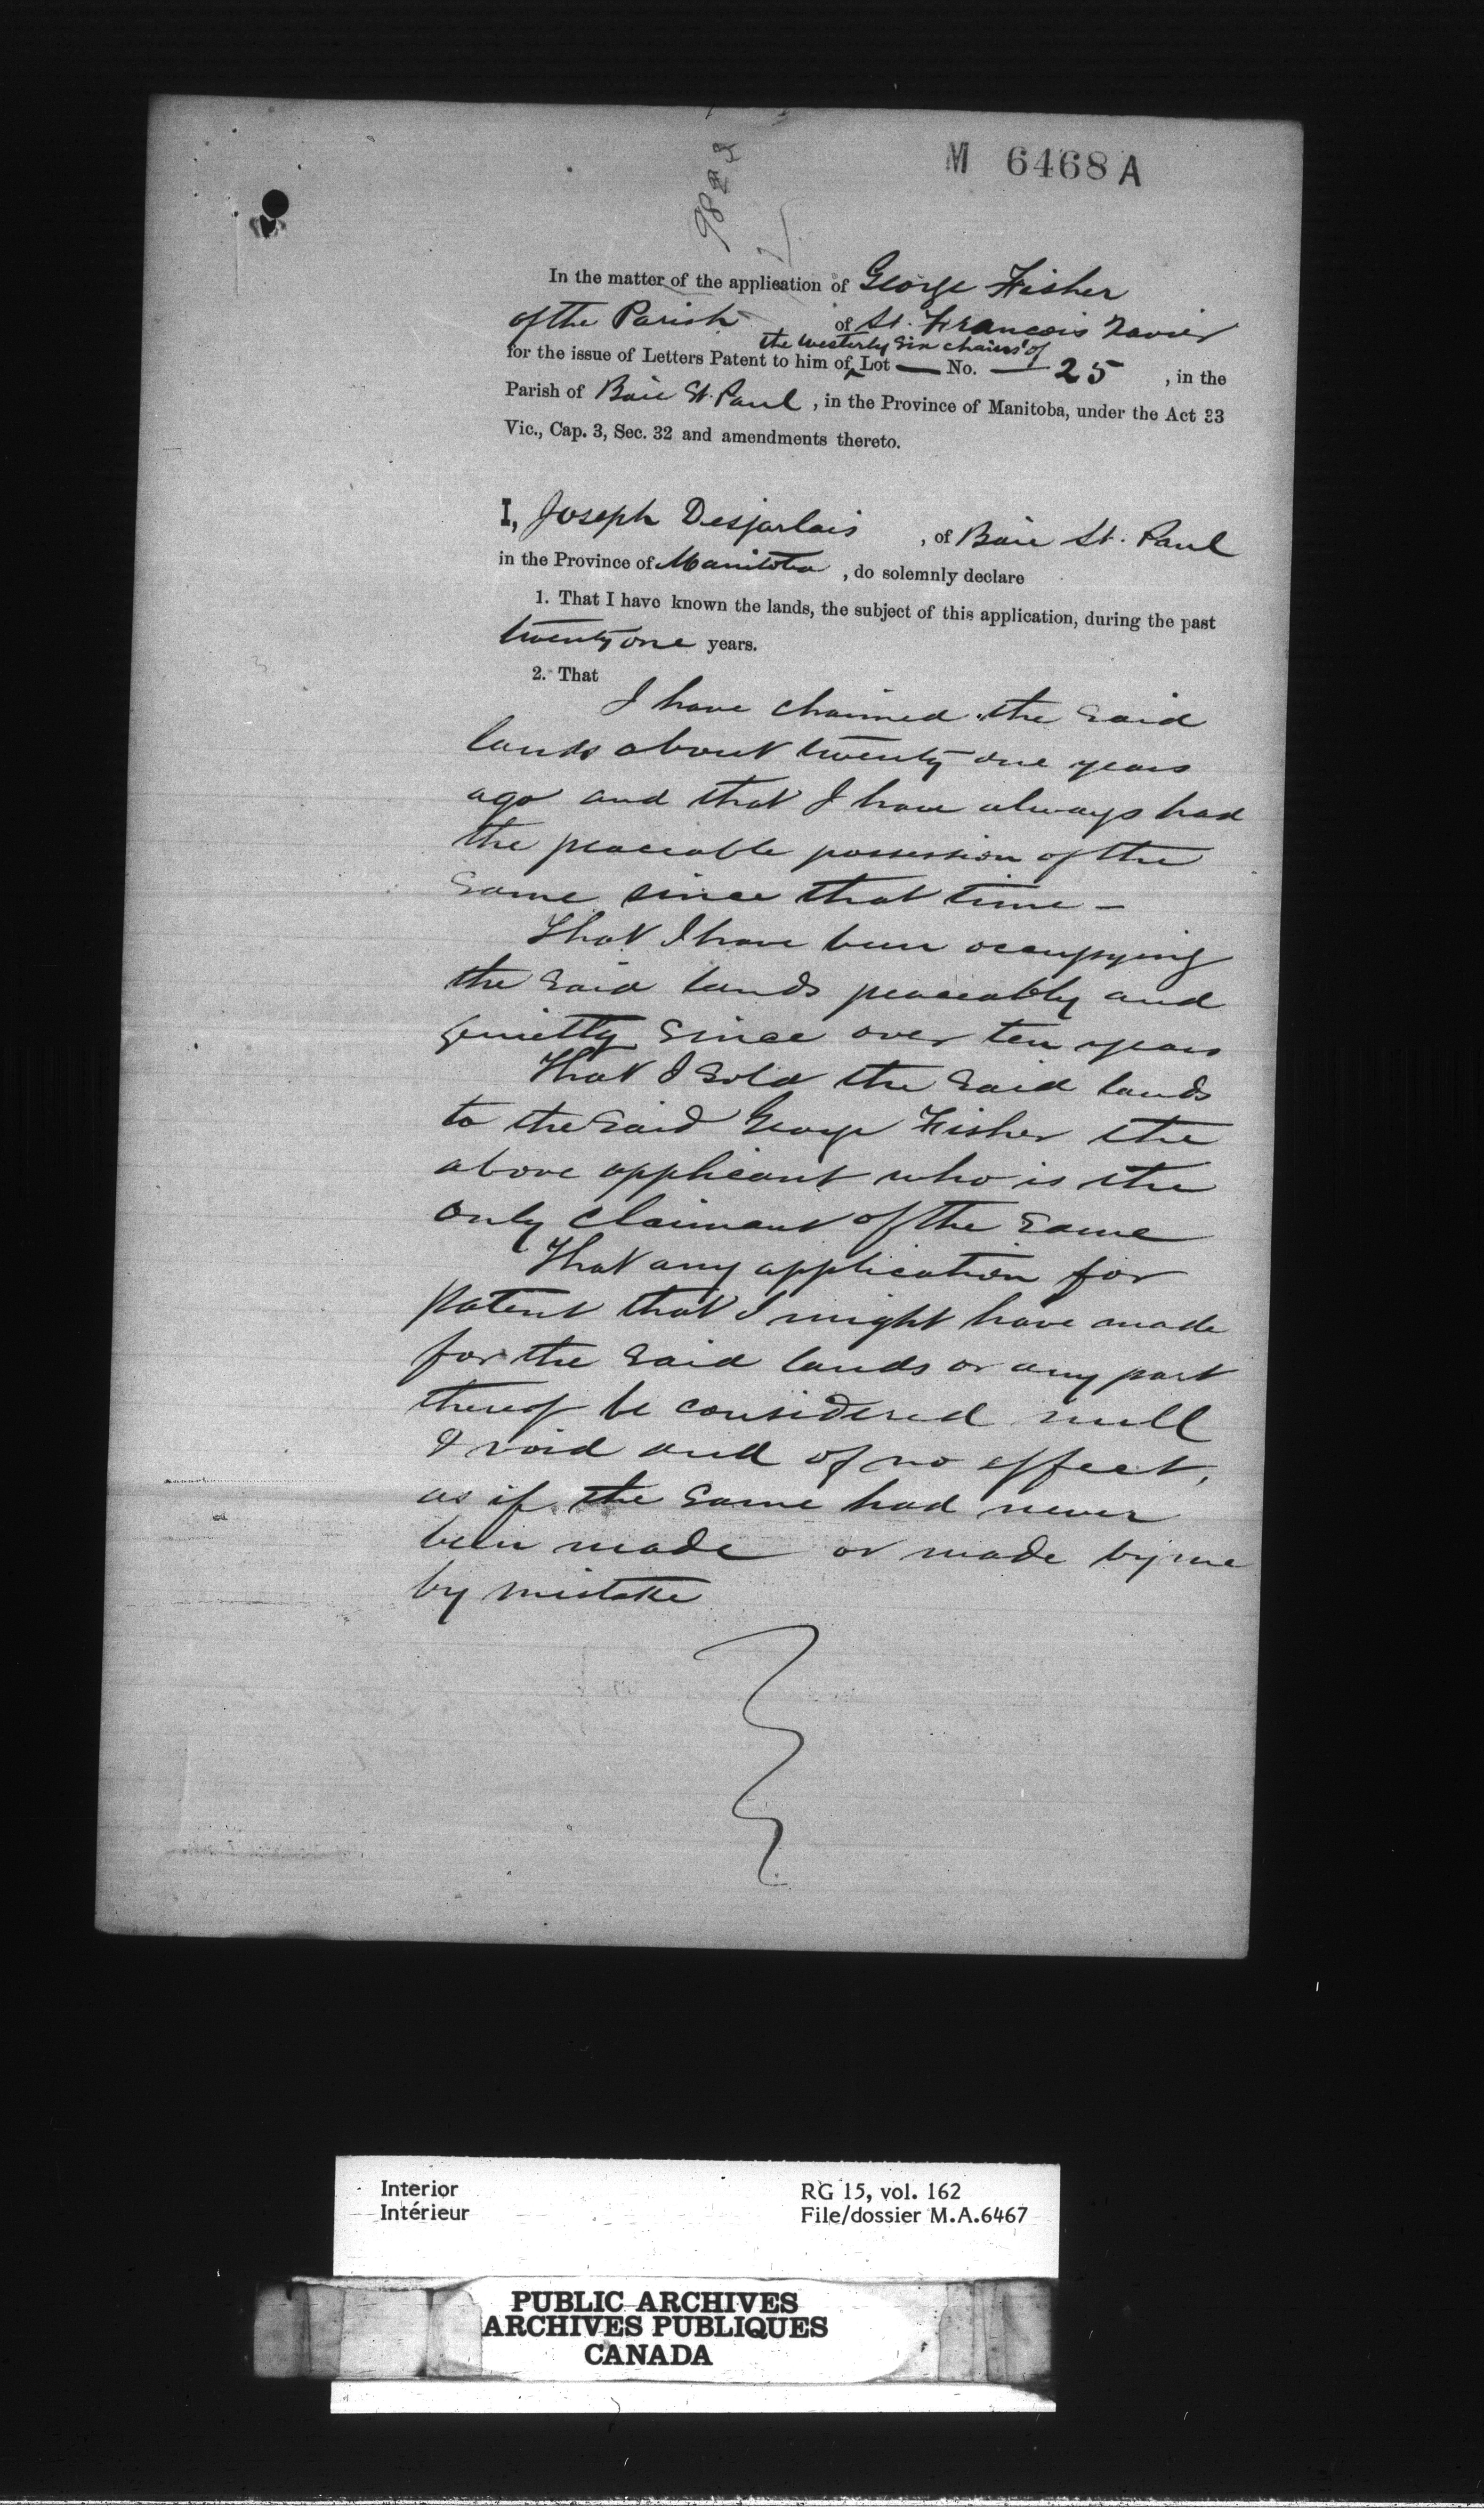 M 6468 A
In the matter of the application of George Fisher
of the Parish of St. Francois Xavier
the westerly six chains of
for the issue of Letters Patent to him of ‸ Lot — No. — 25 , in the
Parish of Baie St. Paul , in the Province of Manitoba, under the Act 33
Vic., Cap. 3, Sec. 32 and amendments thereto.
I, Joseph Desjarlais , of Baie St. Paul
in the Province of Manitoba , do solemnly declare
1. That I have known the lands, the subject of this application, during the past
twenty one years.
2. That
I have chained the said
lands about twenty one years
ago and that I have always had
the peaceable possession of the
same since that time –
That I have been occupying
the said lands peaceably and
quietly since over ten years
That I sold the said lands
to the said George Fisher the
above applicant who is the
only claimant of the same
That any application for
patent that I might have made
for the said lands or any part
thereof be considered null
& void and of no effect,
as if the same had never
been made or made by me
by mistake
Interior
Intérieur
RG 15, vol. 162
File/dossier M.A.6467
PUBLIC ARCHIVES
ARCHIVES PUBLIQUES
CANADA